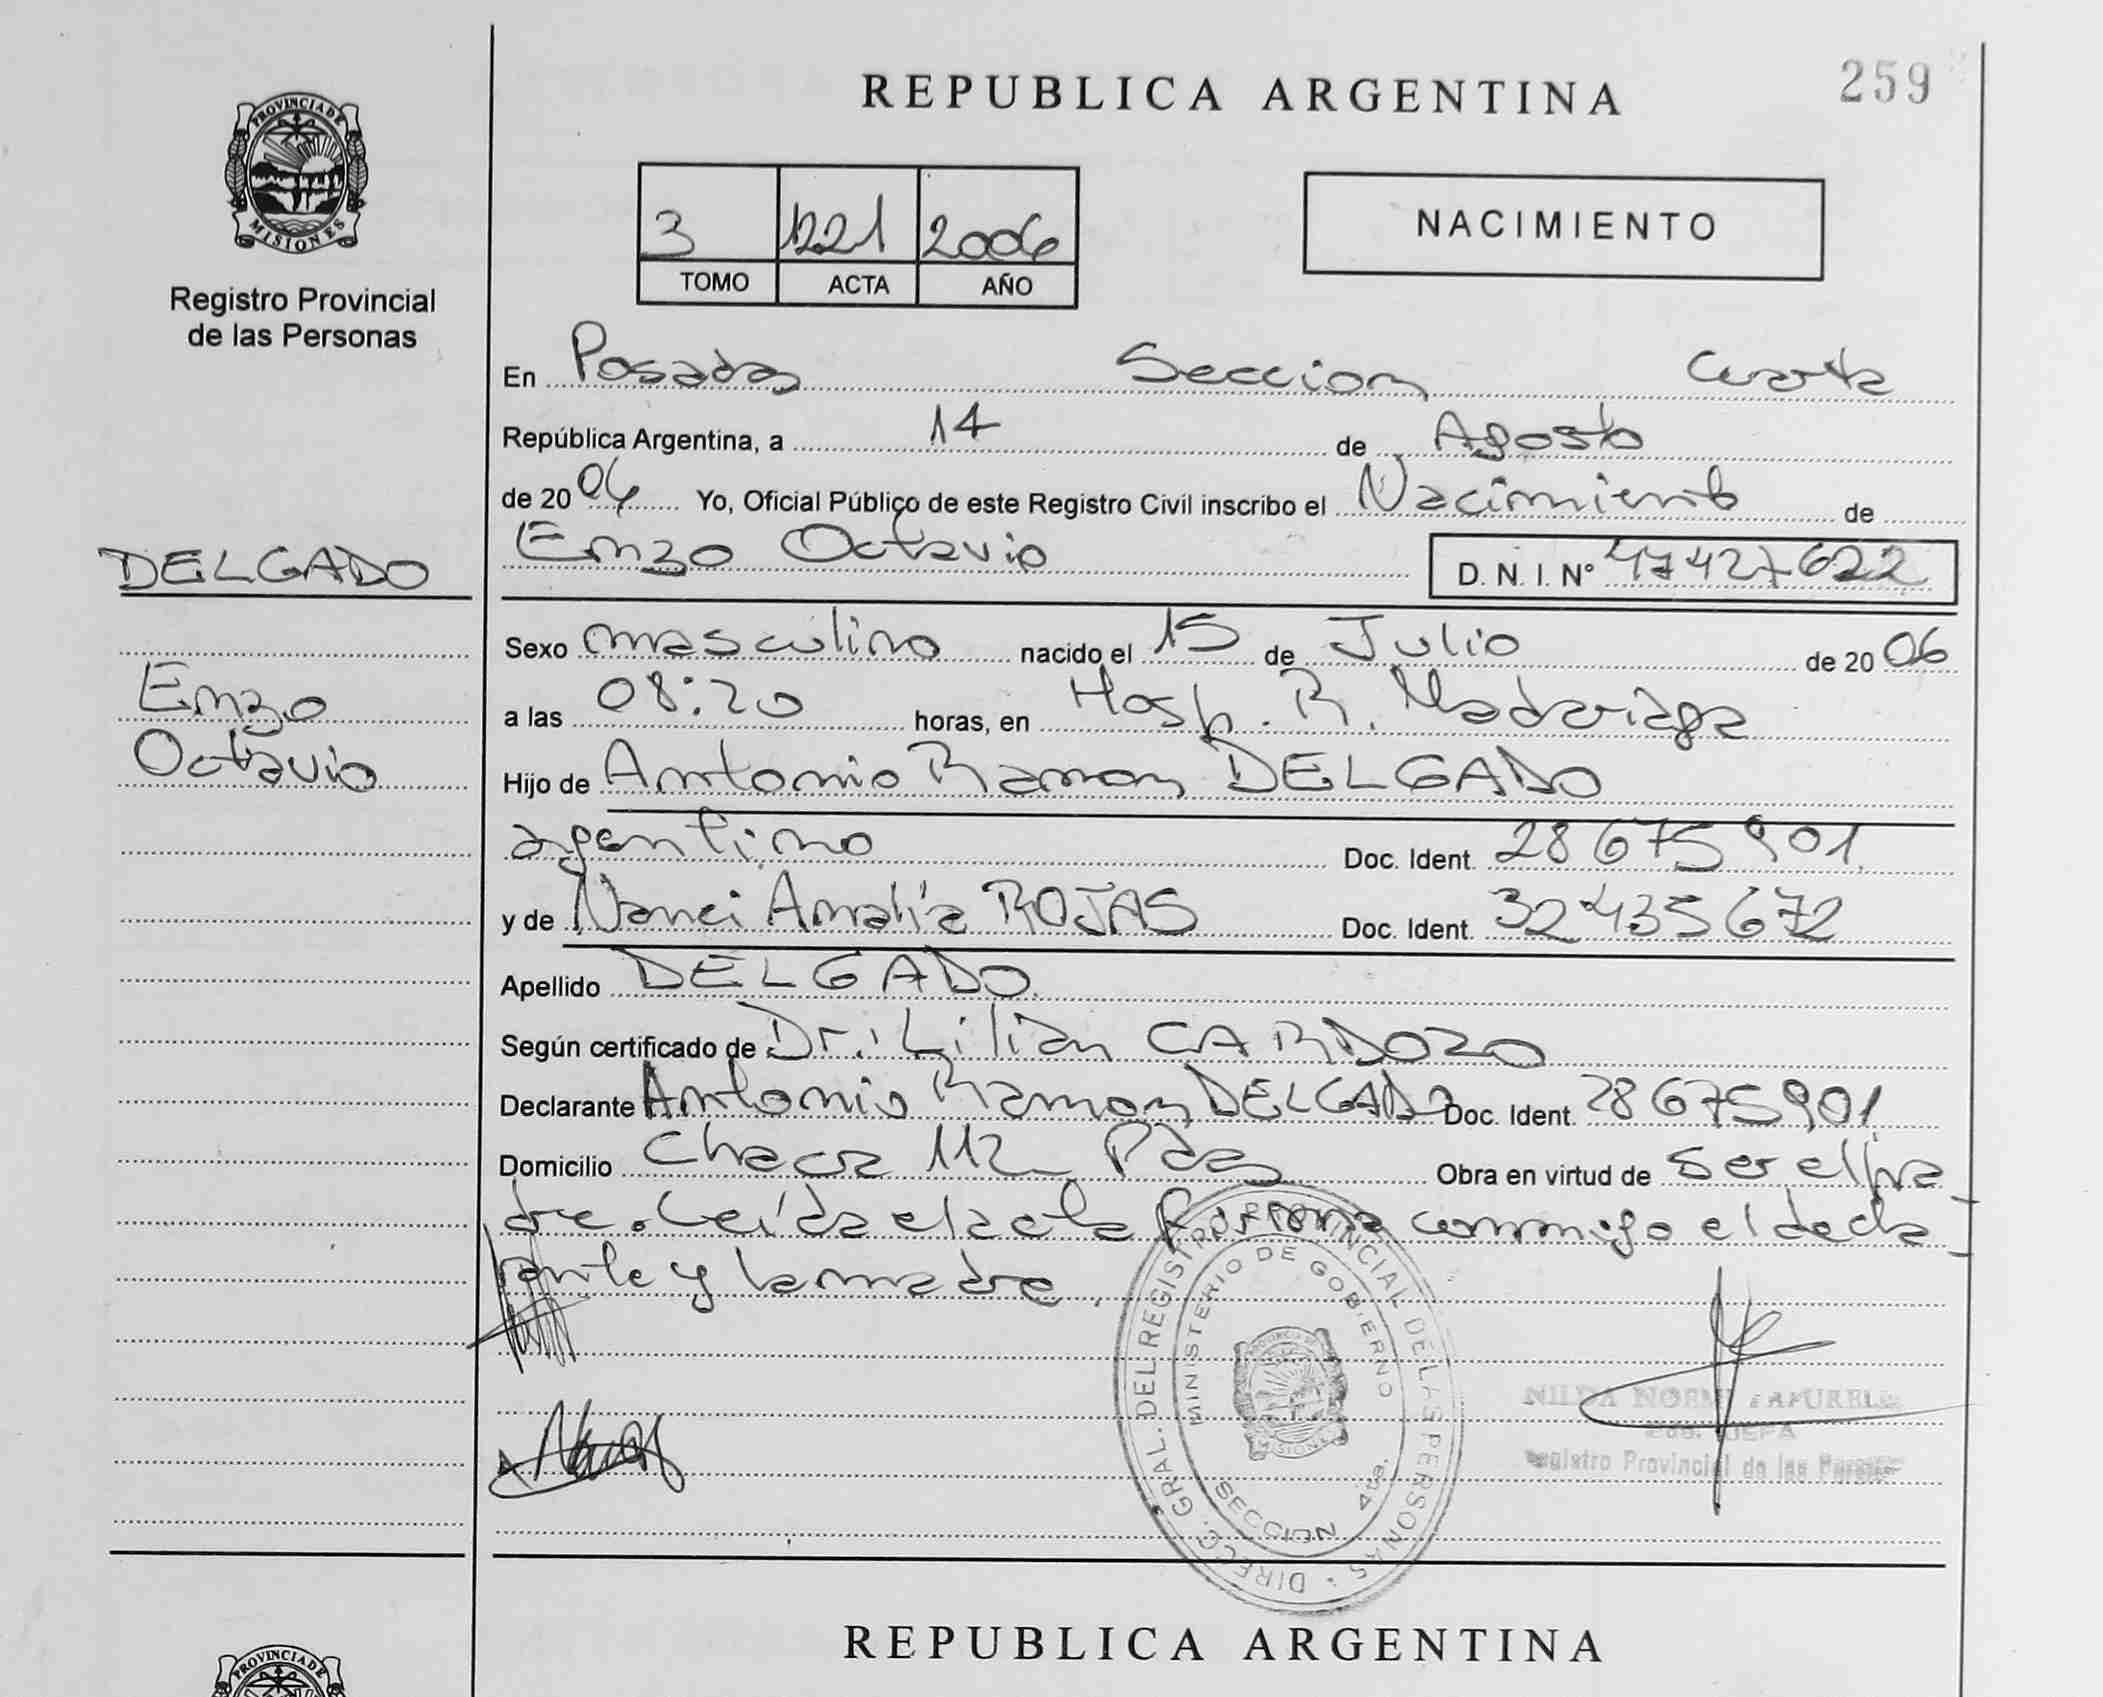 REPUBLICA ARGENTINA
259
PROVINCIA DE
MISIONES
Registro Provincial
de las Personas
3 1221 2006
TOMO ACTA AÑO
NACIMIENTO
En Posadas Seccion Cuarta
República Argentina, a 14 de Agosto
de 2006 Yo, Oficial Público de este Registro Civil inscribo el Nacimiento de
DELGADO
Enzo Octavio D. N. I. Nº 47427622
Sexo masculino nacido el 15 de Julio de 2006
Enzo
Octavio
a las 08:20 horas, en Hosp. R. Madariaga
Hijo de Antonio Ramon DELGADO
agentino Doc. Ident. 28675901
y de Nanci Amalia ROJAS Doc. Ident. 32435672
Apellido DELGADO
Según certificado de Dr.: Lilian CARDOZO
Declarante Antonio Ramon DELGADO Doc. Ident. 28675901
Domicilio Chacra 112 Pdas Obra en virtud de ser el pa
dre. Leída el acta firma conmigo el decla
rante y la madre.
DIRECC. GRAL. DEL REGISTRO PROVINCIAL DE LAS PERSONAS
MINISTERIO DE GOBIERNO
PROVINCIA DE
MISIONES
SECCION 4ta.
NILDA NOEMI
Registro Provincial de las Personas
REPUBLICA ARGENTINA
PROVINCIA DE